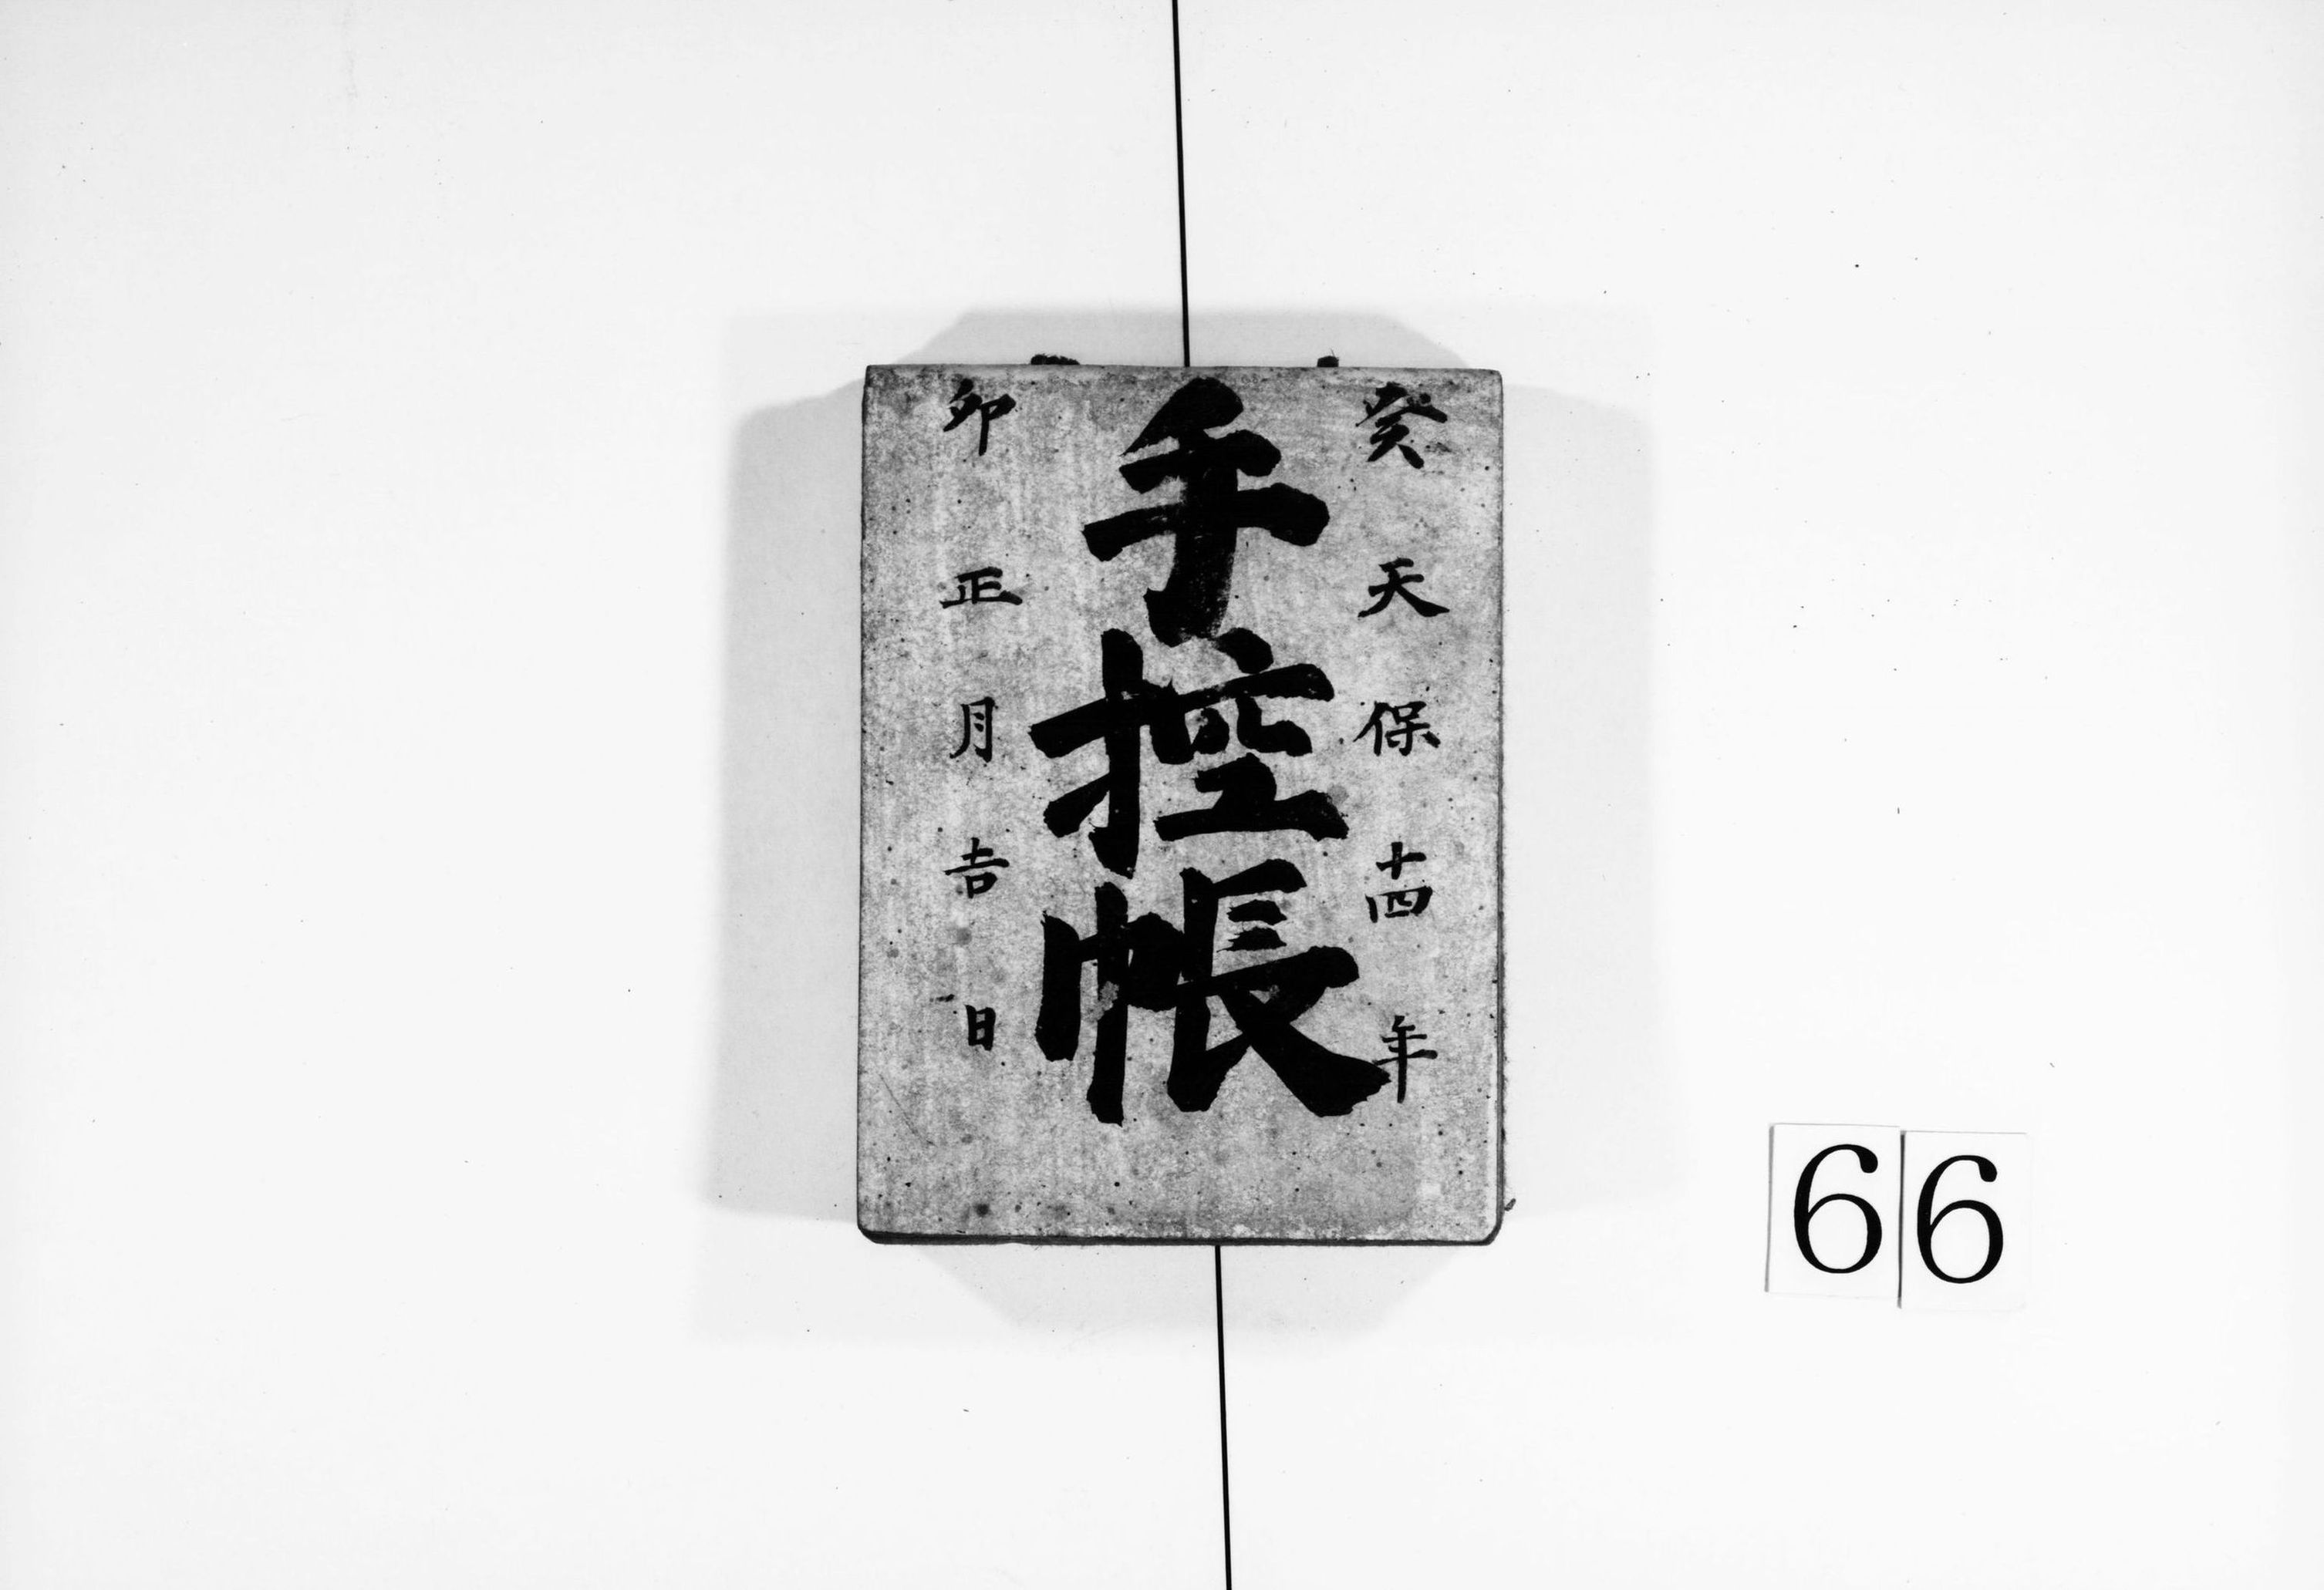 癸天保十四年
手控帳
卯正月吉日
66